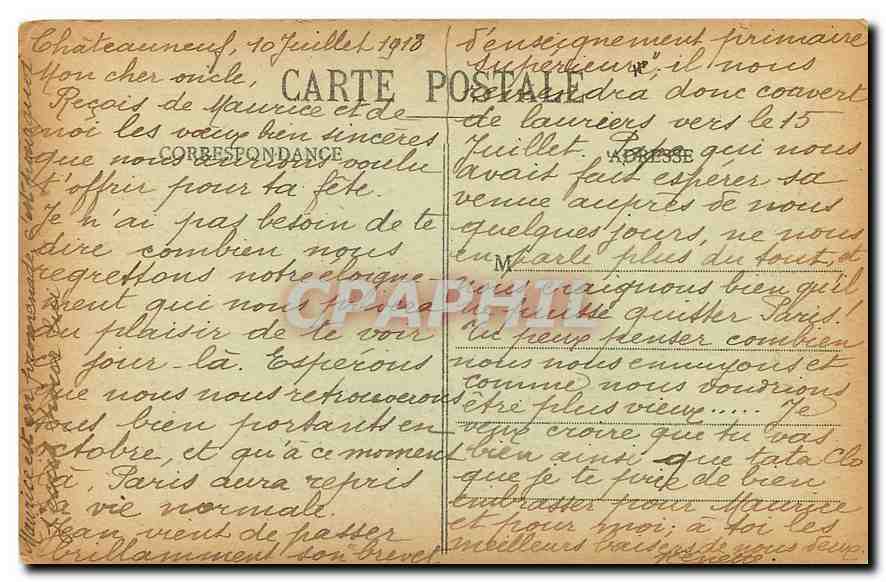 Châteauneuf, 10 Juillet 1918
Mon cher oncle,
CARTE POSTALE
Reçois de Maurice et de
moi les vœux bien sincères
CORRESPONDANCE
que nous aurions voulu
t'offrir pour ta fête.
Je n'ai pas besoin de te
dire combien nous
regrettons notre éloigne-
ment qui nous privera
du plaisir de te voir
jour-là. Espérons
que nous nous retrouverons
tous bien portants en
octobre, et qu'à ce moment
là, Paris aura repris
sa vie normale.
Jean vient de passer
brillamment son brevet
d'enseignement primaire
supérieur", il nous
reviendra donc couvert
de lauriers vers le 15
Juillet. Papa qui nous
ADRESSE
avait fait espérer sa
venue auprès de nous
quelques jours, ne nous
en parle plus du tout, et
M
nous craignons bien qu'il
ne puisse quitter Paris!
Tu peux penser combien
nous nous ennuyons et
comme nous voudrions
être plus vieux..... Je
veux croire que tu vas
bien ainsi que tata Clo
que je te prie de bien
embrasser pour Maurice
et pour moi; à toi les
meilleurs baisers de nous deux.
Maurice est en
CPAPHIL